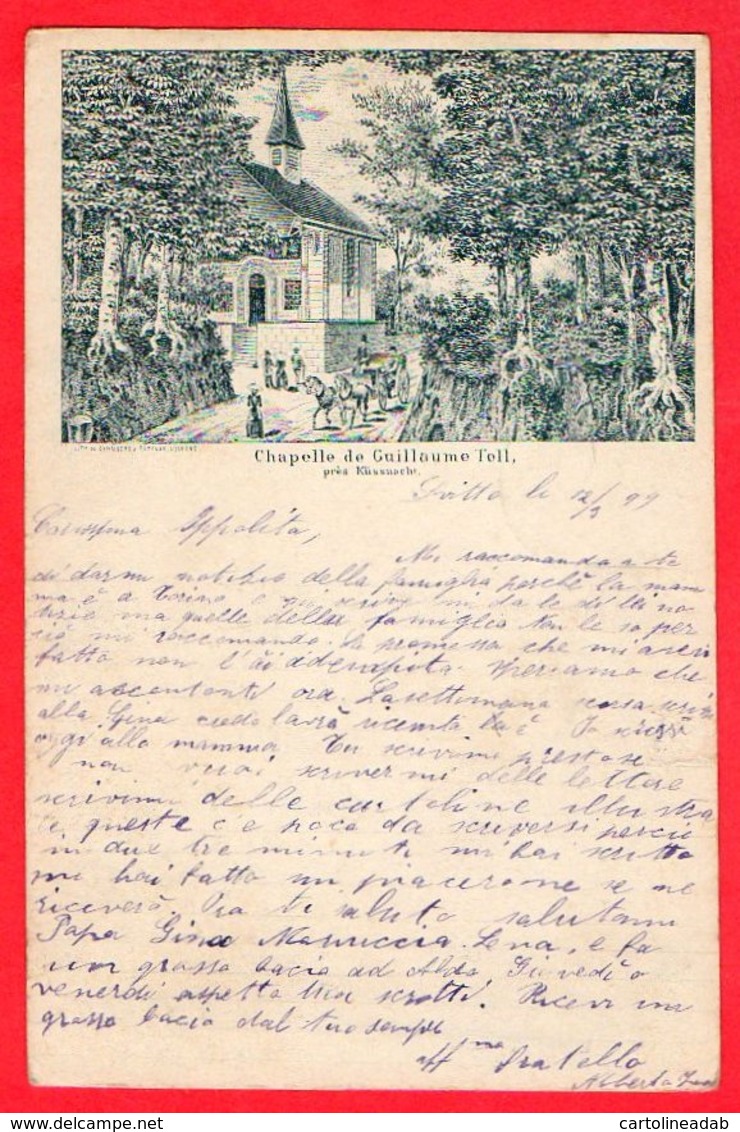 Chapelle de Guillaume Tell,
près Küssnacht.
Svitto li 12/9 99
Carissima Ippolita,
Mi raccomando a te
di darmi notizie della famiglia perchè la mam
ma è a Torino e qui scrive mi da le di lei no
tizie ma quelle della famiglia non le so per
ciò mi raccomando. La promessa che mi avevi
fatto non l'ai adempita. Speriamo che
mi accontenti ora. La settimana scorsa scrissi
alla Gina credo l'avrà ricevuta. Io scrissi
oggi alla mamma Tu scrivimi presto se
non vuoi scrivermi delle lettere
scrivimi delle cartoline illustra
te, queste c'e poco da scriversi perciò
in due tre minuti mi hai scritto
mi hai fatto un piacerone se ne
riceverò Ora ti saluto salutami
Papa Gina Mariuccia. Lena, e fa
un grosso bacio ad Aldo. Giovedì o
venerdì aspetto tuoi scritti. Ricevi un
grosso bacio dal tuo sempre
aff mo fratello
Alberto
cartolineadab